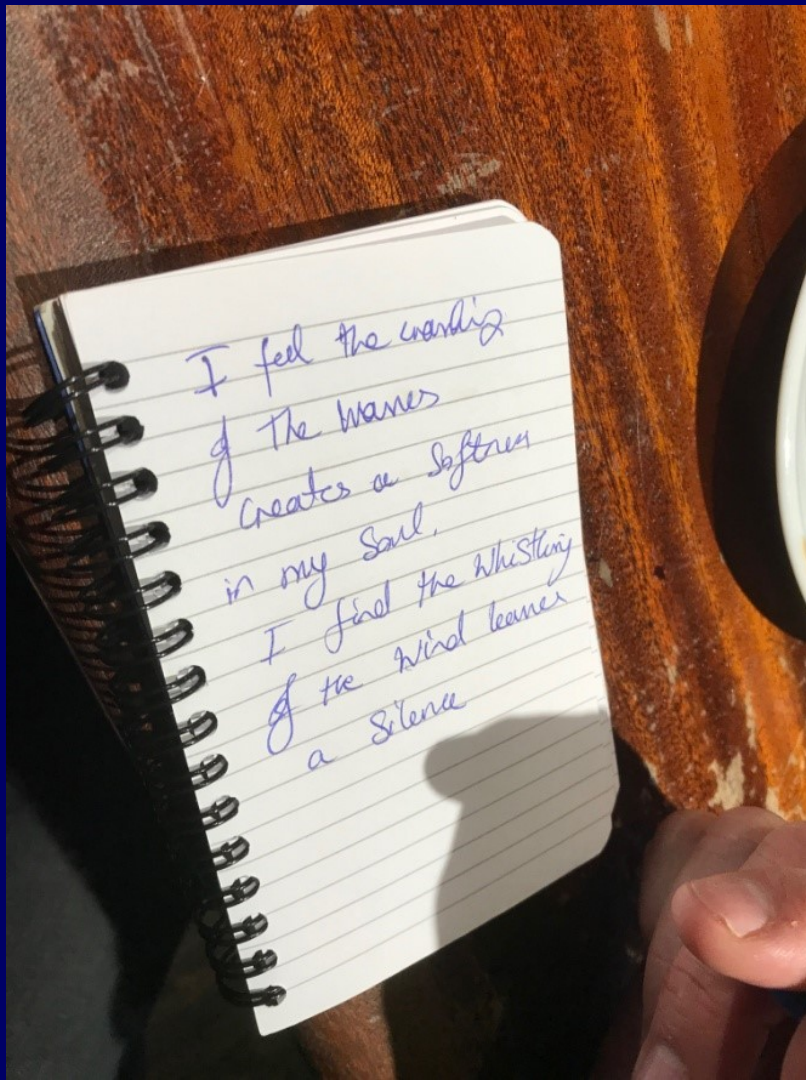 I feel the crashing
of the waves
creates a softness
in my soul.
I find the whistling
of the wind leaves
a silence